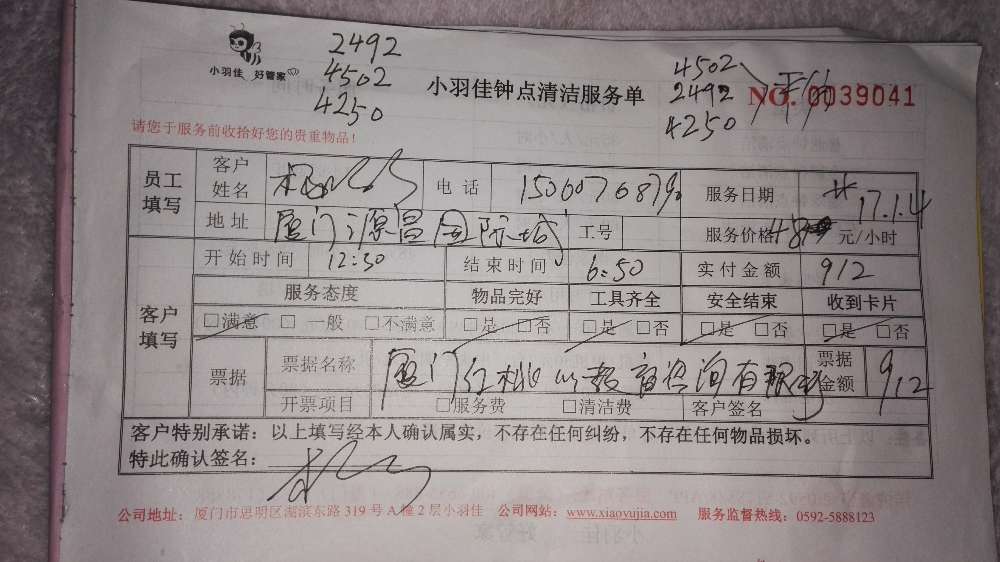 小羽佳 好管家
2492
4502
4250
小羽佳钟点清洁服务单
4502
2492
4250
NO. 0039041
请您于服务前收拾好您的贵重物品!
员工填写
客户姓名 电话 服务日期 17.1.4
地址 厦门源昌国际城 工号 服务价格 元/小时
客户填写
开始时间 12:30 结束时间 6:50 实付金额 912
服务态度 物品完好 工具齐全 安全结束 收到卡片
□满意 □一般 □不满意 □是 □否 □是 □否 □是 □否 □是 □否
票据 票据名称 厦门红桃 教育咨询有限 票据金额 912
开票项目 □服务费 □清洁费 客户签名
客户特别承诺:以上填写经本人确认属实,不存在任何纠纷,不存在任何物品损坏。
特此确认签名:
公司地址:厦门市思明区湖滨东路 319 号 A 幢 2 层小羽佳 公司网站:www.xiaoyujia.com 服务监督热线:0592-5888123